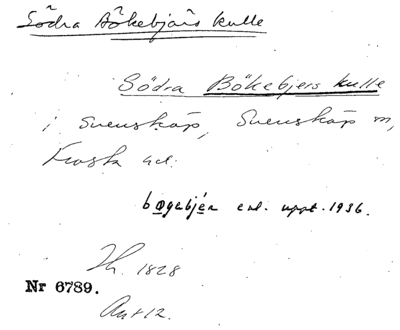 Södra Bökebjärs kulle
Södra Bökebjers kulle
i Svenskåp, Svenskåp m,
Frosta hd.
bøgebjér enl. uppt. 1936.
Th. 1828
Nr 6789.
Ant 12.